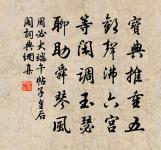 寶典推重五
歡聲沸六宮
等閑調玉瑟
聊助舜琴風
周必大端午帖子皇后
閣詞典網集